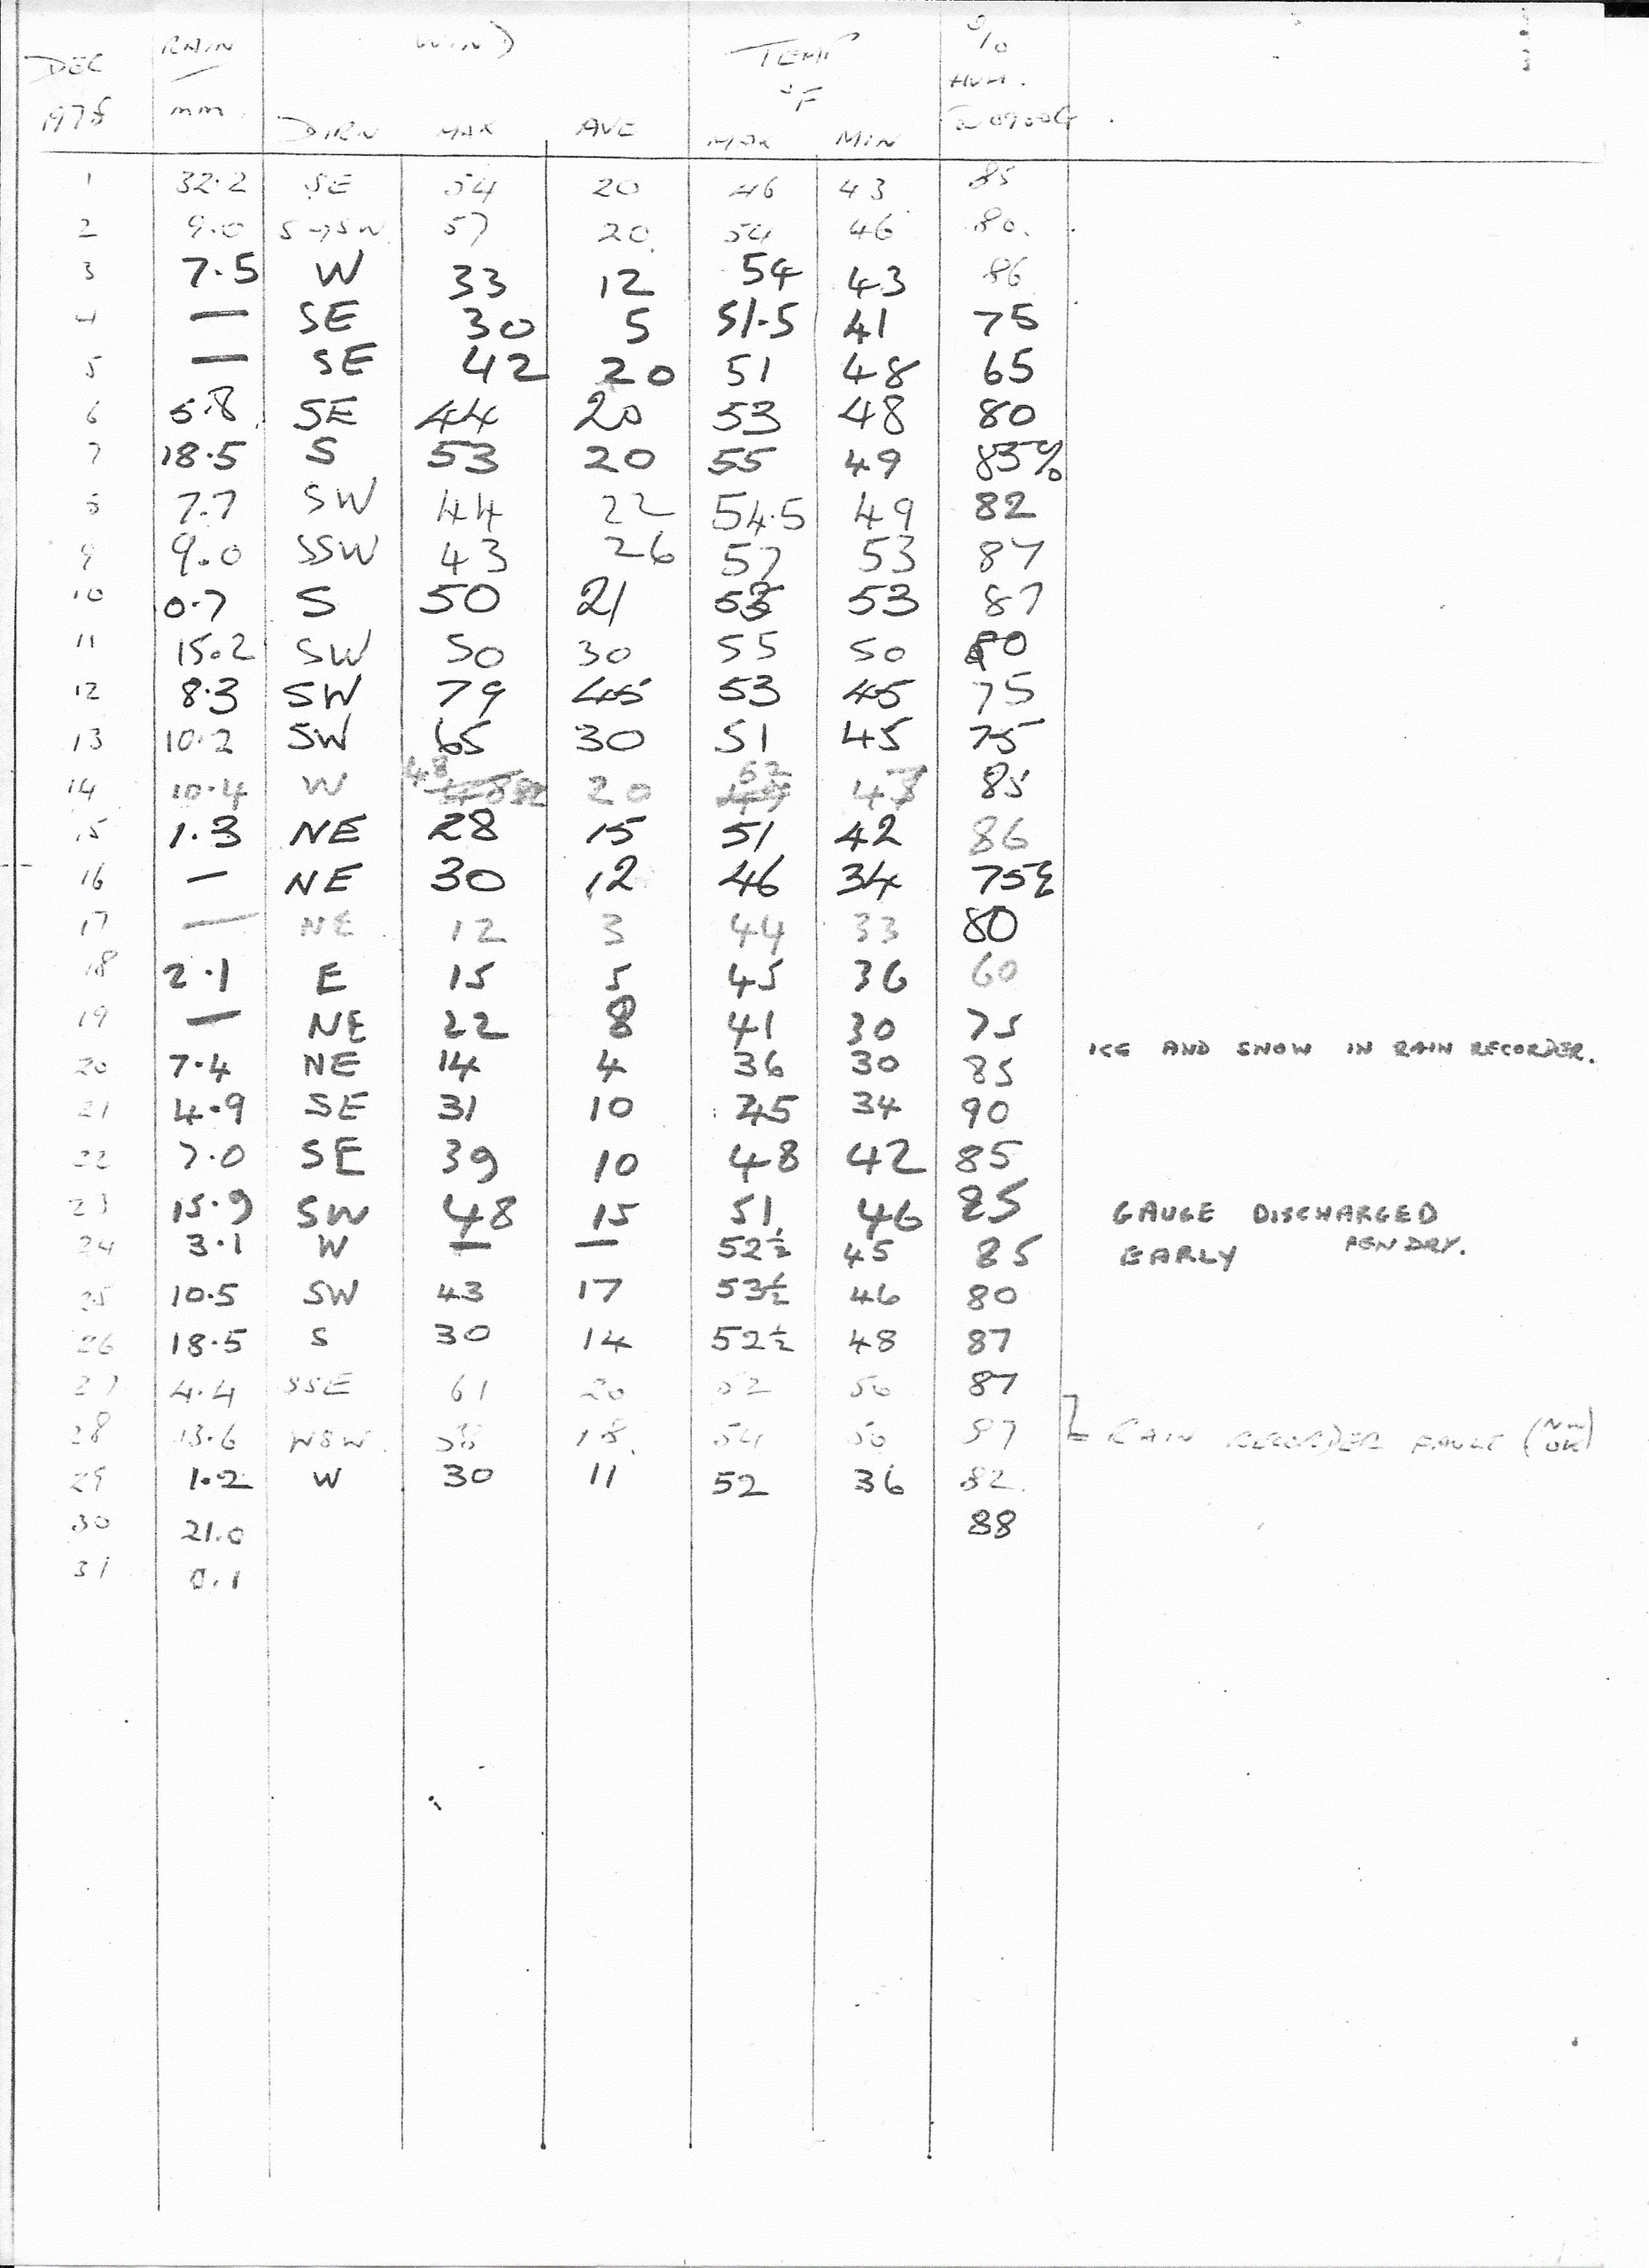 DEC RAIN WIND TEMP %
1978 mm. DIRN MAX AVE °F MAX MIN HUM. @0900G
1 32.2 SE 54 20 46 43 85
2 9.0 S→SW 57 20 54 46 80
3 7.5 W 33 12 54 43 86
4 — SE 30 5 51.5 41 75
5 — SE 42 20 51 48 65
6 5.8 SE 44 20 53 48 80
7 18.5 S 53 20 55 49 85%
8 7.7 SW 44 22 54.5 49 82
9 9.0 SSW 43 26 57 53 87
10 0.7 S 50 21 53 87
11 15.2 SW 50 30 55 50 80
12 8.3 SW 79 45 53 45 75
13 10.2 SW 65 30 51 45 75
14 10.4 W 48 20 52 43 85
15 1.3 NE 28 15 51 42 86
16 — NE 30 12 46 34 75
17 — NE 12 3 44 33 80
18 2.1 E 15 5 45 36 60
19 — NE 22 8 41 30 75
20 7.4 NE 14 4 36 30 85 ICE AND SNOW IN RAIN RECORDER.
21 4.9 SE 31 10 45 34 90
22 7.0 SE 39 10 48 42 85
23 15.9 SW 48 15 51 46 85 GAUGE DISCHARGED
24 3.1 W — — 52½ 45 85 EARLY PEN DRY.
25 10.5 SW 43 17 53½ 46 80
26 18.5 S 30 14 52½ 48 87
27 4.4 SSE 61 20 52 50 87
28 13.6 WSW 38 18 54 50 87 RAIN RECORDER FAULT (NOW OK)
29 1.2 W 30 11 52 36 82
30 21.0 88
31 0.1